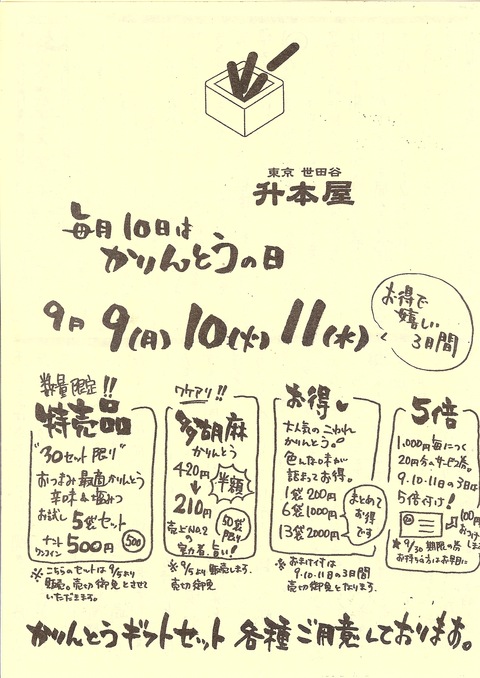 東京 世田谷
升本屋
毎月10日は
かりんとうの日
9月 9(月) 10(火) 11(水)
お得で
嬉しい
3日間
数量限定!!
特売品
"30セット限り"
おつまみ最適かりんとう
辛味&塩みつ
お試し 5袋セット
ナント
ワンコイン 500円
500
※こちらのセットは9/5より
販売。売切御免とさせて
いただきます。
ワケアリ!!
多胡麻
かりんとう
420円
→
210円
半額
売上No.2
の
実力者。旨い!
50袋
限り
※9/5より販売します。
売切御免
お得
大人気のこわれ
かりんとう。
色んな味が
詰まってお得。
1袋200円
6袋1000円
13袋2000円
まとめて
お得
です
※おまけ付は
9・10・11日の3日間
売切御免となります。
5倍
1,000円毎につく
20円分のサービス券。
9・10・11の3日は
5倍付け!
100円
★9/30期限の券
お持ちの方はお早目に
かりんとうギフトセット 各種ご用意しております。